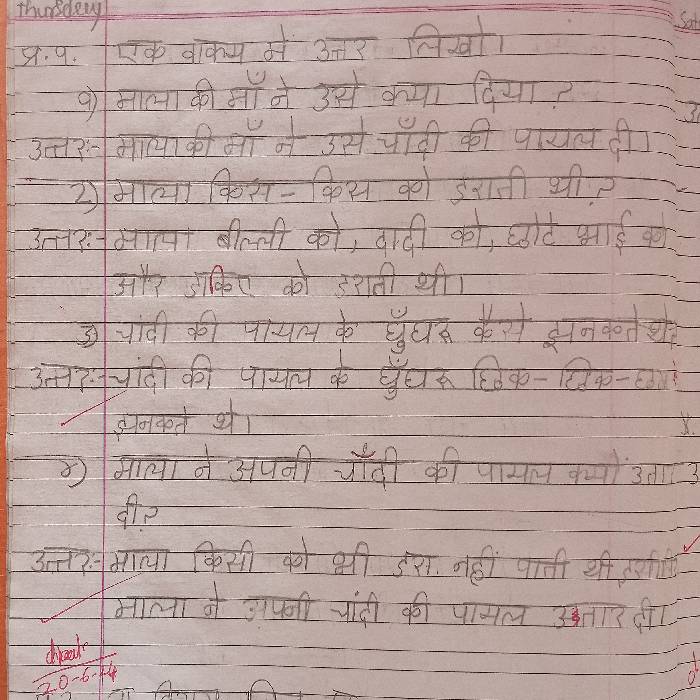 Thursday
प्र.१. एक वाक्य में उत्तर लिखो।
१) माला की माँ ने उसे क्या दिया?
उत्तर:- माला की माँ ने उसे चाँदी की पायल दी।
२) माला किस - किस को डराती थी?
उत्तर:- माला बील्ली को, दादी को, छोटे भाई को
और डाकिए को डराती थी।
३) चांदी की पायल के घुँघरू कैसे झनकते थे?
उत्तर:- चांदी की पायल के घुँघरू छिक - छिक -
झनकते थे।
४) माला ने अपनी चाँदी की पायल क्यों उतार
दी?
उत्तर:- माला किसी को भी डरा नहीं पाती थी इसलिए
माला ने अपनी चांदी की पायल उतार दी।
20-6-24